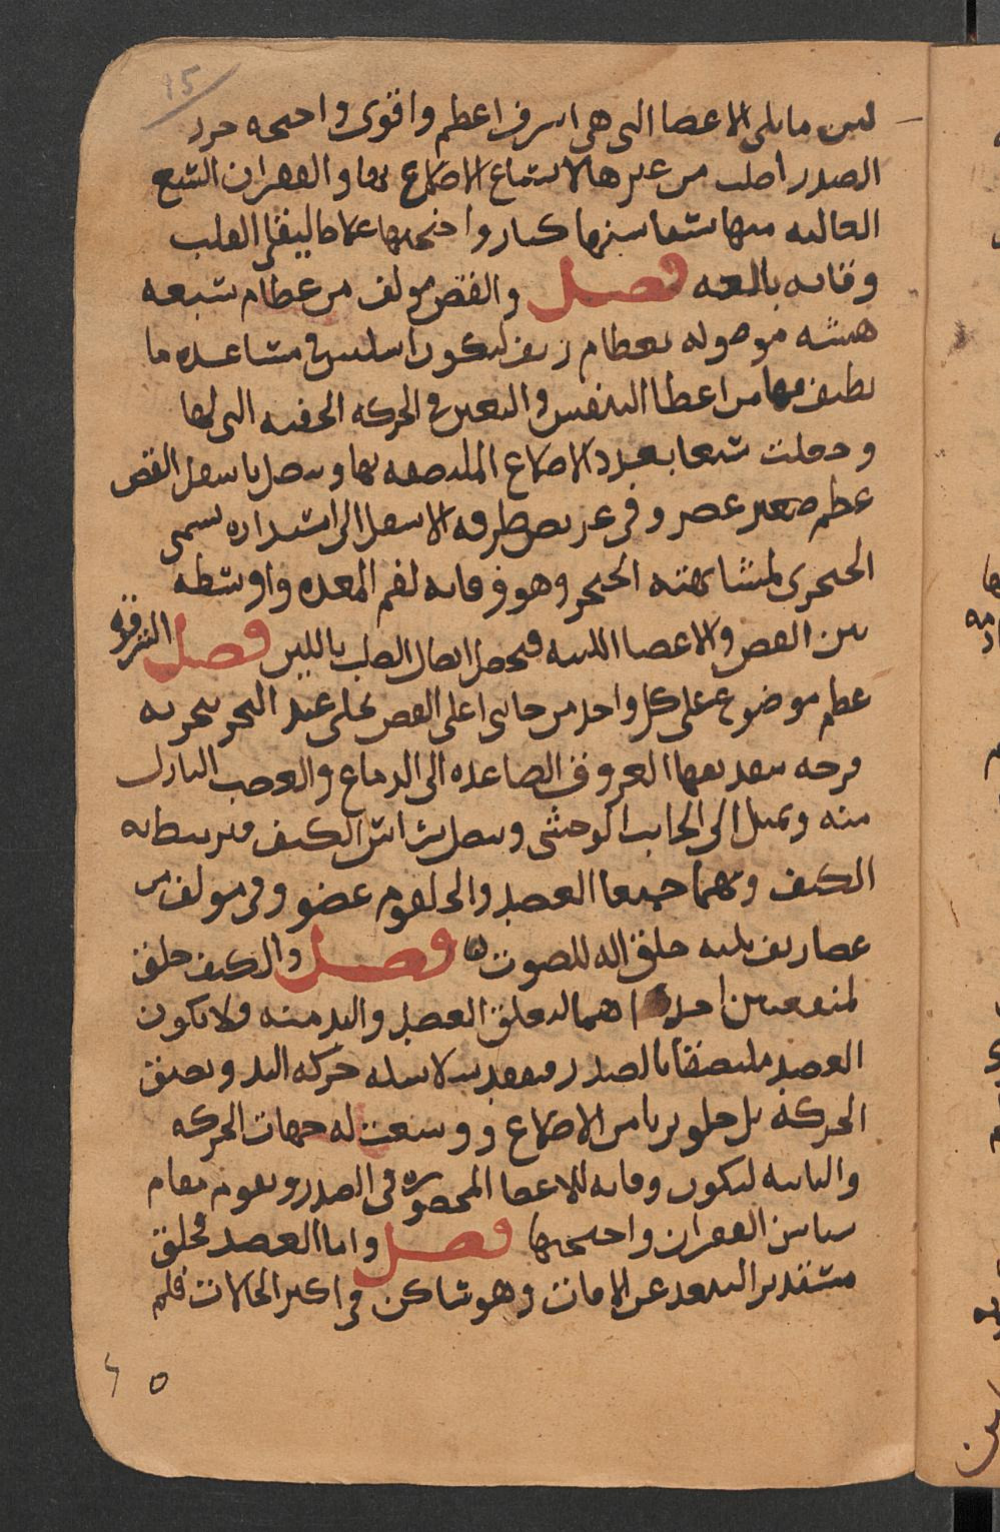 15
لبس مايلى الاعضا التى هى اشرف اعظم واقوى واجنحه خرز
الصدر اصلب من غيرها لاتساع الاضلاع بها والفقران السبع
العاليه منها سناسنها كبار واجنحتها غلاظ ليقى القلب
وقايه بالغه فصل والقص مولف من عظام سبعه
هشه موصوله بعظام ليكون اسلس فى مساعده ما
يطيف بها من اعضا التنفس فى الحركه الخفيه التى لها
وجعلت سبعا بعدد الاضلاع الملتصقه بها ويتصل باسفل القص
عظم صغير غضروفى عريض طرفه الاسفل الى استداره يسمى
الحنجرى لمشابهته الخنجر وهو وقايه لفم المعده واوسطه
بين القص والاعضا اللينه فيحصل اتصال الصلب باللين فصل الترقوه
عظم موضوع على كل واحد من جانبى اعلى القص يخلى عند النحر بتحدبه
فرجه ينفذ فيها العروق الصاعده الى الدماغ والعصب النازل
منه ويميل الى الجانب الوحشى ويتصل براس الكتف فيرتبط به
الكتف وبهما جميعا العضد والحلقوم عضو وفى مولف من
غضاريف يليه خلق اله للصوت فصل والكتف خلق
لمنفعتين احداهما لتعلق العضد واليد منه ولا يكون
العضد ملتصقا بالصدر فينعقد سلاسه حركه اليد وتضيق
الحركه بل خلو بريا من الاضلاع ووسعت له جهات الحركه
والثانيه ليكون وقايه للاعضا المحصوره فى الصدر ويقوم مقام
سناسن الفقران واجنحتها فصل واما العضد فخلق
مستدير البعد عن الافات وهو ساكن فى اكثر الحالات فلم